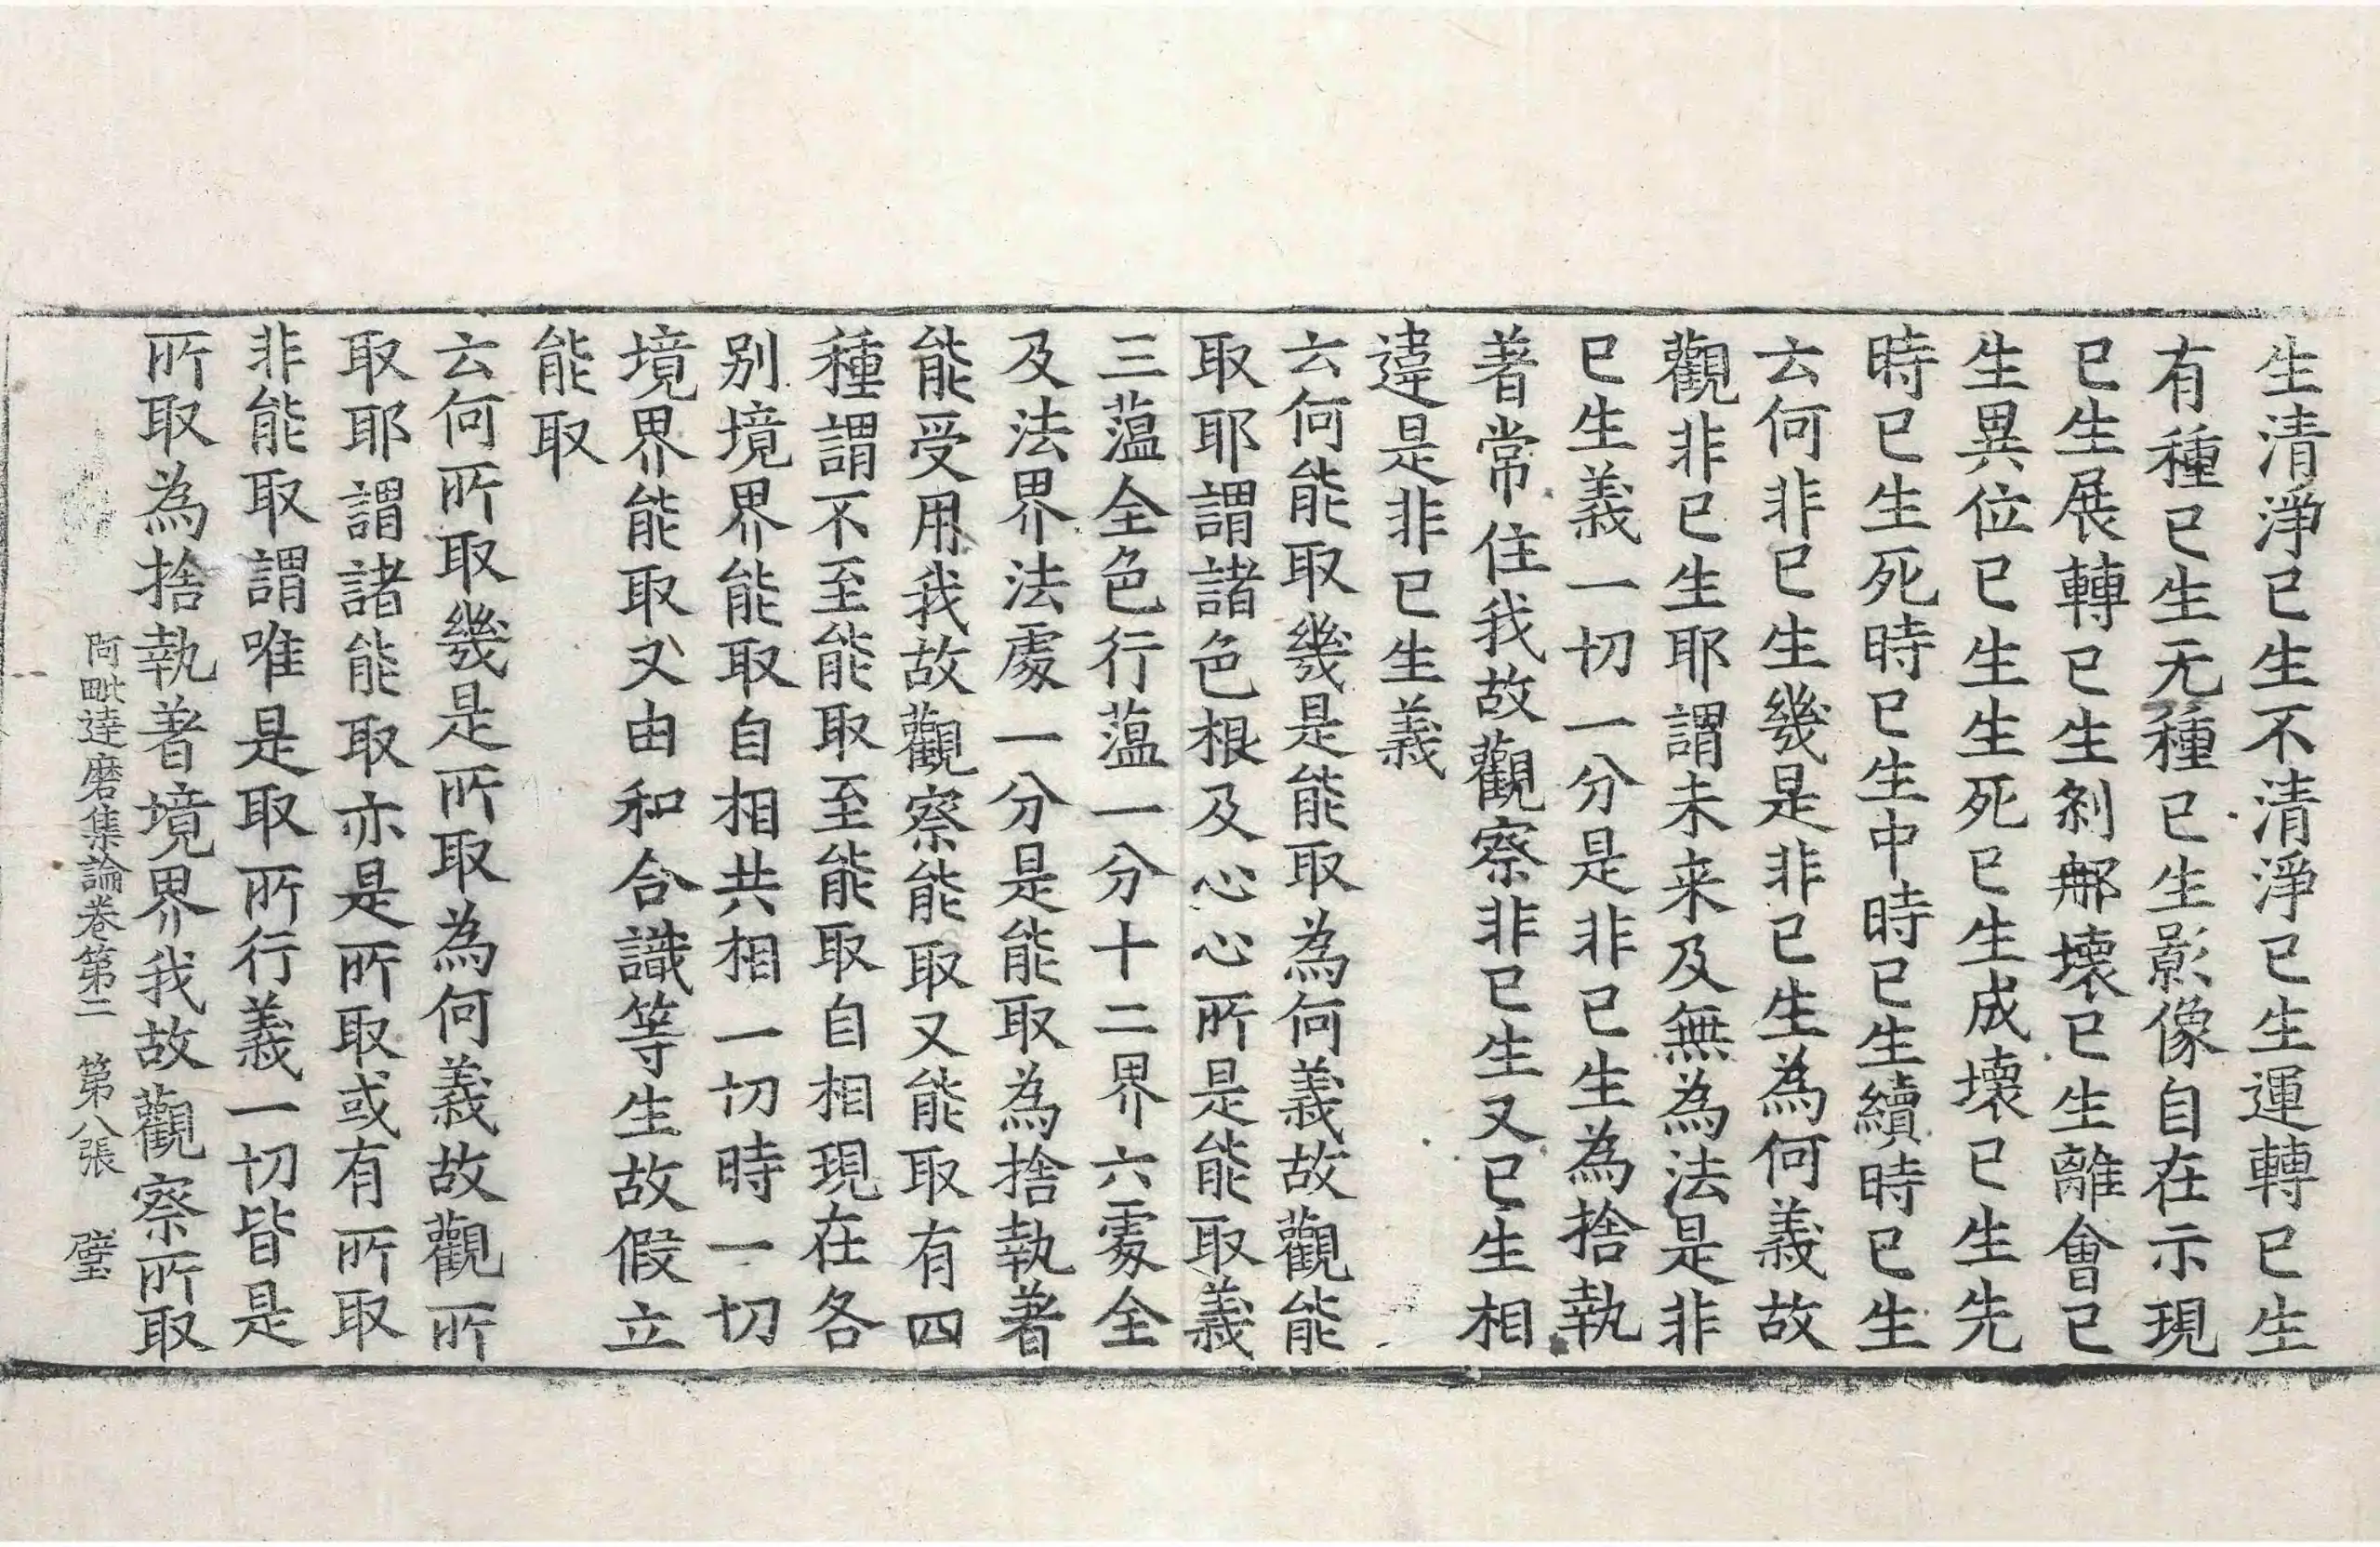 生清淨已生不清淨已生運轉已生
有種已生无種已生影像自在示現
已生展轉已生剎那壞已生離會已
生異位已生生死已生成壞已生先
時已生死時已生中時已生續時已生
云何非已生幾是非已生為何義故
觀非已生耶謂未来及無為法是非
已生義一切一分是非已生為捨執
著常住我故觀察非已生又已生相
違是非已生義
云何能取幾是能取為何義故觀能
取耶謂諸色根及心心所是能取義
三蕰全色行蕰一分十二界六處全
及法界法處一分是能取為捨執著
能受用我故觀察能取又能取有四
種謂不至能取至能取自相現在各
別境界能取自相共相一切時一切
境界能取又由和合識等生故假立
能取
云何所取幾是所取為何義故觀所
取耶謂諸能取亦是所取或有所取
非能取謂唯是取所行義一切皆是
所取為捨執著境界我故觀察所取
阿毗達磨集論卷第二 第八張 璧